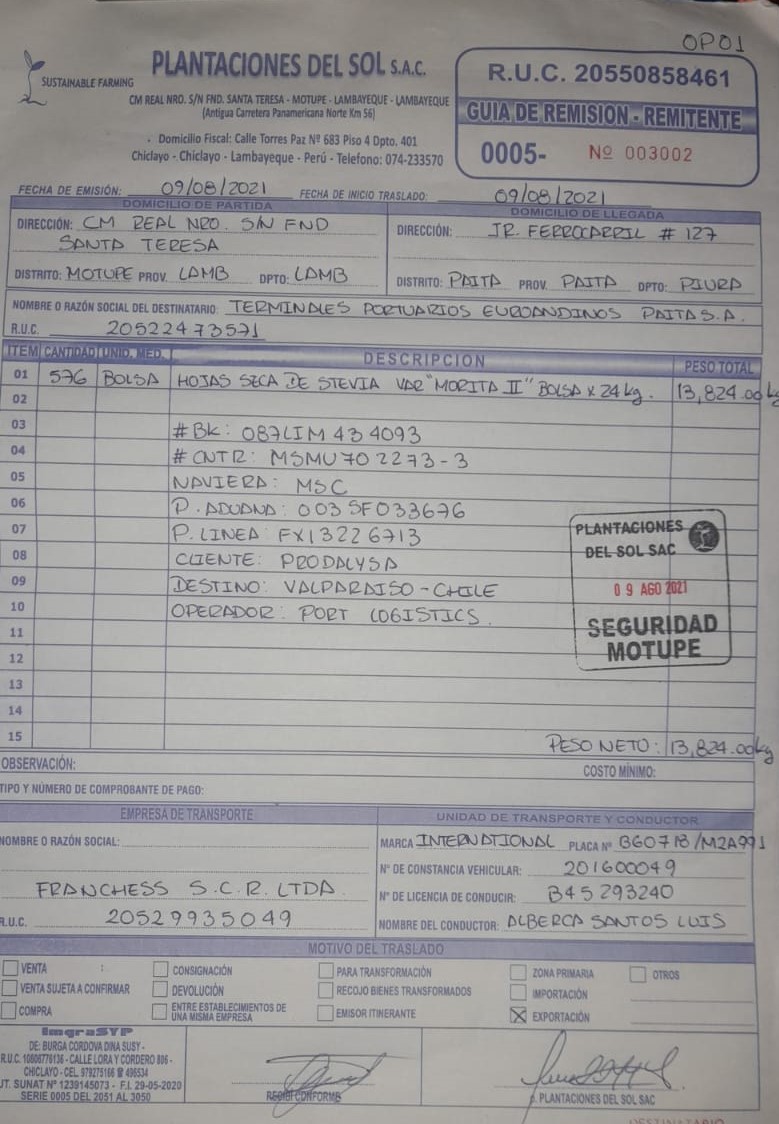 OP01
SUSTAINABLE FARMING
PLANTACIONES DEL SOL S.A.C.
CM REAL NRO. S/N FND. SANTA TERESA - MOTUPE - LAMBAYEQUE - LAMBAYEQUE
(Antigua Carretera Panamericana Norte Km 56)
Domicilio Fiscal: Calle Torres Paz Nº 683 Piso 4 Dpto. 401
Chiclayo - Chiclayo - Lambayeque - Perú - Telefono: 074-233570
R.U.C. 20550858461
GUIA DE REMISION - REMITENTE
0005- Nº 003002
FECHA DE EMISIÓN: 09/08/2021 FECHA DE INICIO TRASLADO: 09/08/2021
DOMICILIO DE PARTIDA
DIRECCIÓN: CM REAL NRO. S/N FND
SANTA TERESA
DISTRITO: MOTUPE PROV. LAMB DPTO: LAMB
DOMICILIO DE LLEGADA
DIRECCIÓN: JR. FERROCARRIL # 127
DISTRITO: PAITA PROV. PAITA DPTO: PIURA
NOMBRE O RAZÓN SOCIAL DEL DESTINATARIO: TERMINALES PORTUARIOS EUROANDINOS PAITA S.A.
R.U.C. 20522473571
ITEM CANTIDAD UNID. MED. DESCRIPCION PESO TOTAL
01 576 BOLSA HOJAS SECA DE STEVIA VAR "MORITA II" BOLSA x 24 kg. 13,824.00 kg
02
03 # BK: 087LIM434093
04 # CNTR: MSMU 702273-3
05 NAVIERA: MSC
06 P. ADUANA: 003SF033676
07 P. LINEA: FX13226713
08 CLIENTE: PRODALYSA
09 DESTINO: VALPARAISO - CHILE
10 OPERADOR: PORT LOGISTICS.
11
12
13
14
15 PESO NETO: 13,824.00 kg
PLANTACIONES
DEL SOL SAC
09 AGO 2021
SEGURIDAD
MOTUPE
OBSERVACIÓN: COSTO MÍNIMO:
TIPO Y NÚMERO DE COMPROBANTE DE PAGO:
EMPRESA DE TRANSPORTE
NOMBRE O RAZÓN SOCIAL:
FRANCHESS S.C.R. LTDA.
R.U.C. 20529935049
UNIDAD DE TRANSPORTE Y CONDUCTOR
MARCA INTERNATIONAL PLACA Nº B60718/M2A991
Nº DE CONSTANCIA VEHICULAR: 201600049
Nº DE LICENCIA DE CONDUCIR: B45293240
NOMBRE DEL CONDUCTOR: ALBERCA SANTOS LUIS
MOTIVO DEL TRASLADO
VENTA CONSIGNACIÓN PARA TRANSFORMACIÓN ZONA PRIMARIA OTROS
VENTA SUJETA A CONFIRMAR DEVOLUCIÓN RECOJO BIENES TRANSFORMADOS IMPORTACIÓN
COMPRA ENTRE ESTABLECIMIENTOS DE UNA MISMA EMPRESA EMISOR ITINERANTE X EXPORTACIÓN
ImgraSYP
DE: BURGA CORDOVA DINA SUSY -
R.U.C. 10806776136 - CALLE LORA Y CORDERO 806 -
CHICLAYO - CEL. 979275166 ☎ 496534
UT. SUNAT Nº 1239145073 - F.I. 29-05-2020
SERIE 0005 DEL 2051 AL 3050
RECIBI CONFORME
p. PLANTACIONES DEL SOL SAC
DESTINATARIO